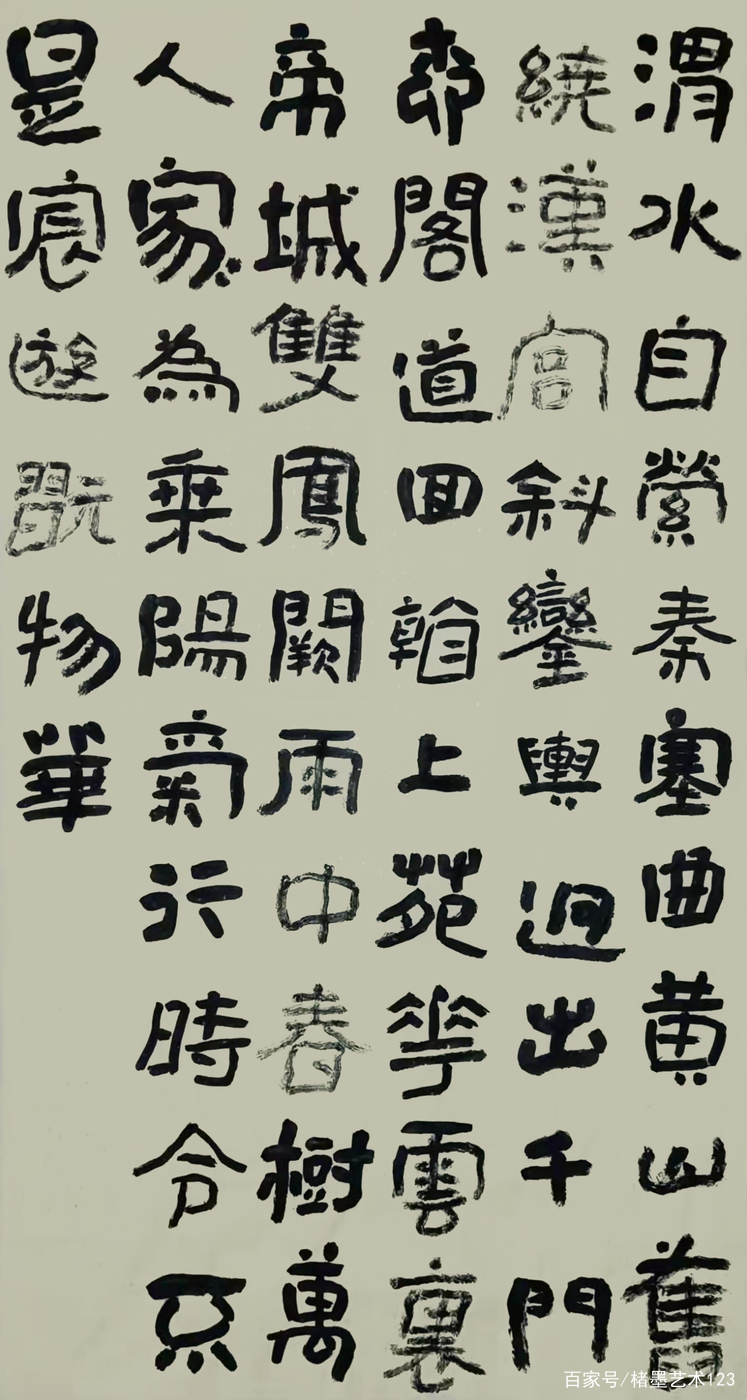 渭水自縈秦塞曲黄山舊
繞漢宮斜鑾輿迥出千門
柳閣道回看上苑花雲裏
帝城雙鳳闕雨中春樹萬
人家為乘陽氣行時令不
是宸遊翫物華
百家号/楮墨艺术123